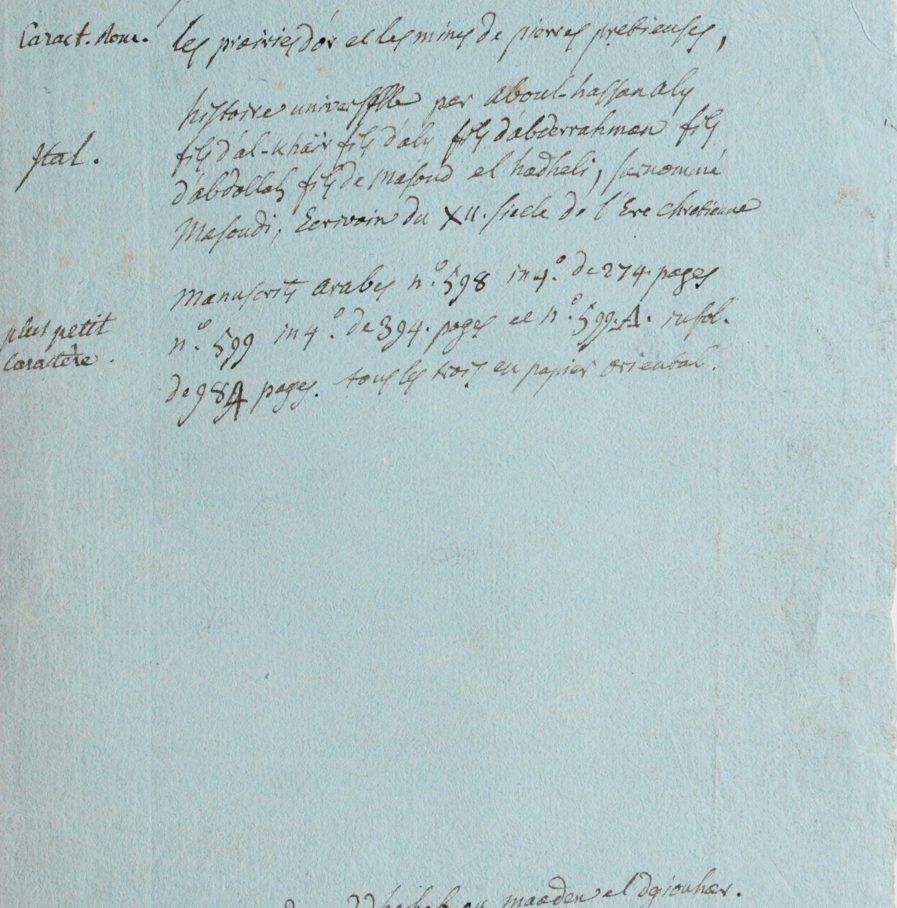 Caract. Rom. les prairies d'or et les mines de pierres pretieuses,
histoire universelle par aboul-hassan aly
Ital. fils d'al-khaïr fils d'aly fils d'abderrahman fils
d'abdollah fils de Masoud el hadheli, surnommé
Masoudi, Ecrivain du XII. siecle de l'Ere chretienne
Manuscrits arabes n.º 598 in 4.º de 274. pages
plus petit caractère. n.º 599 in 4.º de 394. pages et n.º 599.A. in fol.
de 984 pages. tous les trois en papier oriental.
maaden el dgiouhar.